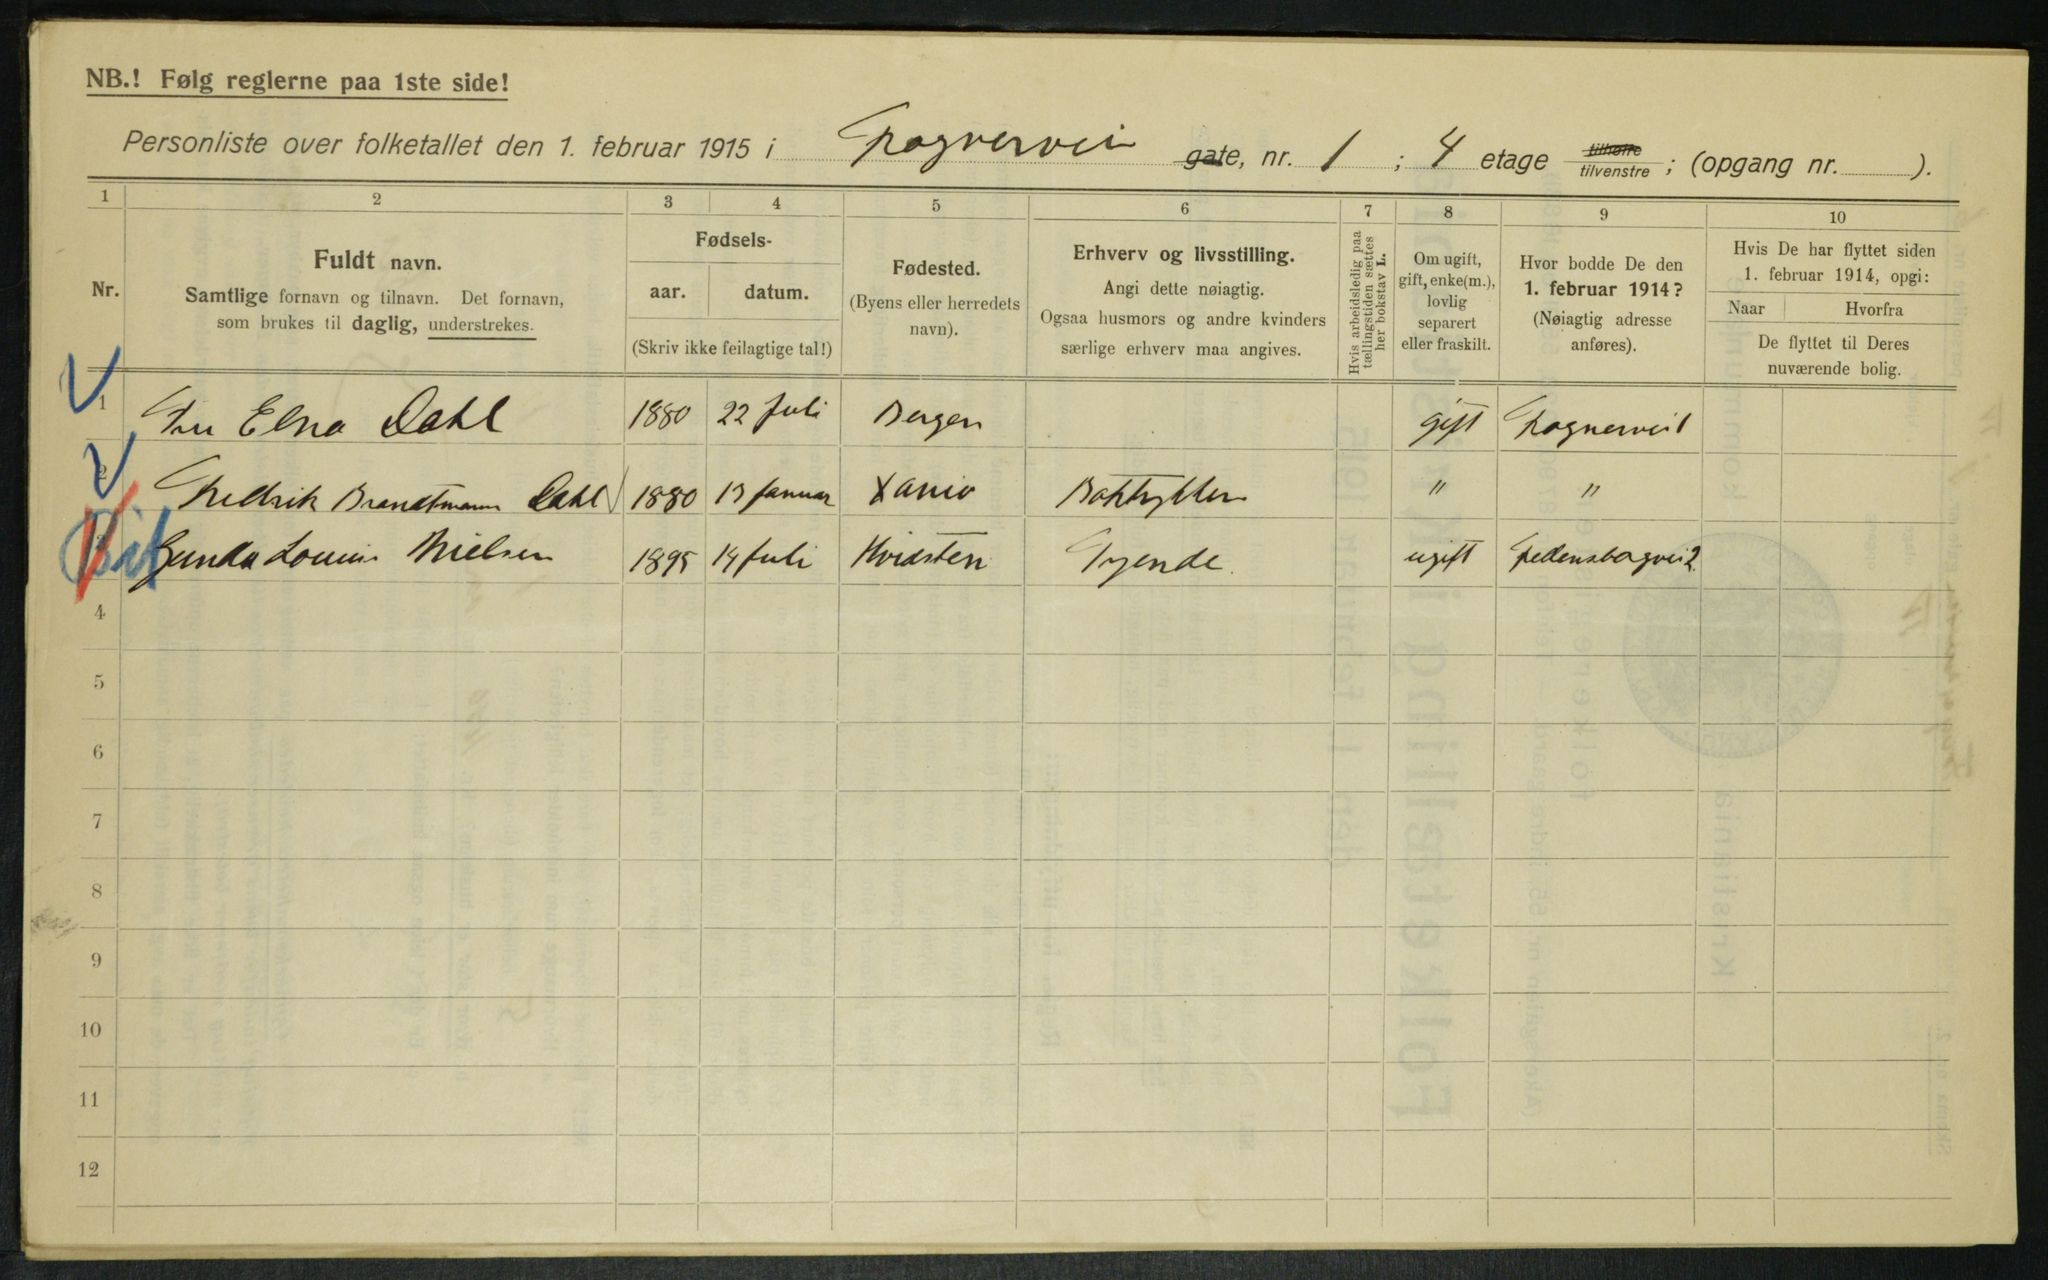 NB.! Følg reglerne paa 1ste side!
Personliste over folketallet den 1. februar 1915 i Frognervei gate, nr. 1 ; 4 etage tilhøire tilvenstre ; (opgang nr. ).
1 2 3 4 5 6 7 8 9 10
Nr.
Fuldt navn.
Samtlige fornavn og tilnavn. Det fornavn,
som brukes til daglig, understrekes.
Fødsels-
aar. datum.
(Skriv ikke feilagtige tal!)
Fødested.
(Byens eller herredets
navn).
Erhverv og livsstilling.
Angi dette nøiagtig.
Ogsaa husmors og andre kvinders
særlige erhverv maa angives.
Hvis arbeidsledig paa
tællingstiden sættes
her bokstav L.
Om ugift,
gift, enke(m.),
lovlig
separert
eller fraskilt.
Hvor bodde De den
1. februar 1914?
(Nøiagtig adresse
anføres).
Hvis De har flyttet siden
1. februar 1914, opgi:
Naar Hvorfra
De flyttet til Deres
nuværende bolig.
1 Fru Elna Dahl 1880 22 Juli Bergen gift Frognervei 1
2 Fredrik Brandtmann Dahl 1880 13 Januar Xania " "
3 Gunda Louise Nielsen 1895 14 Juli Hvidsten Tjende ugift
4
5
6
7
8
9
10
11
12